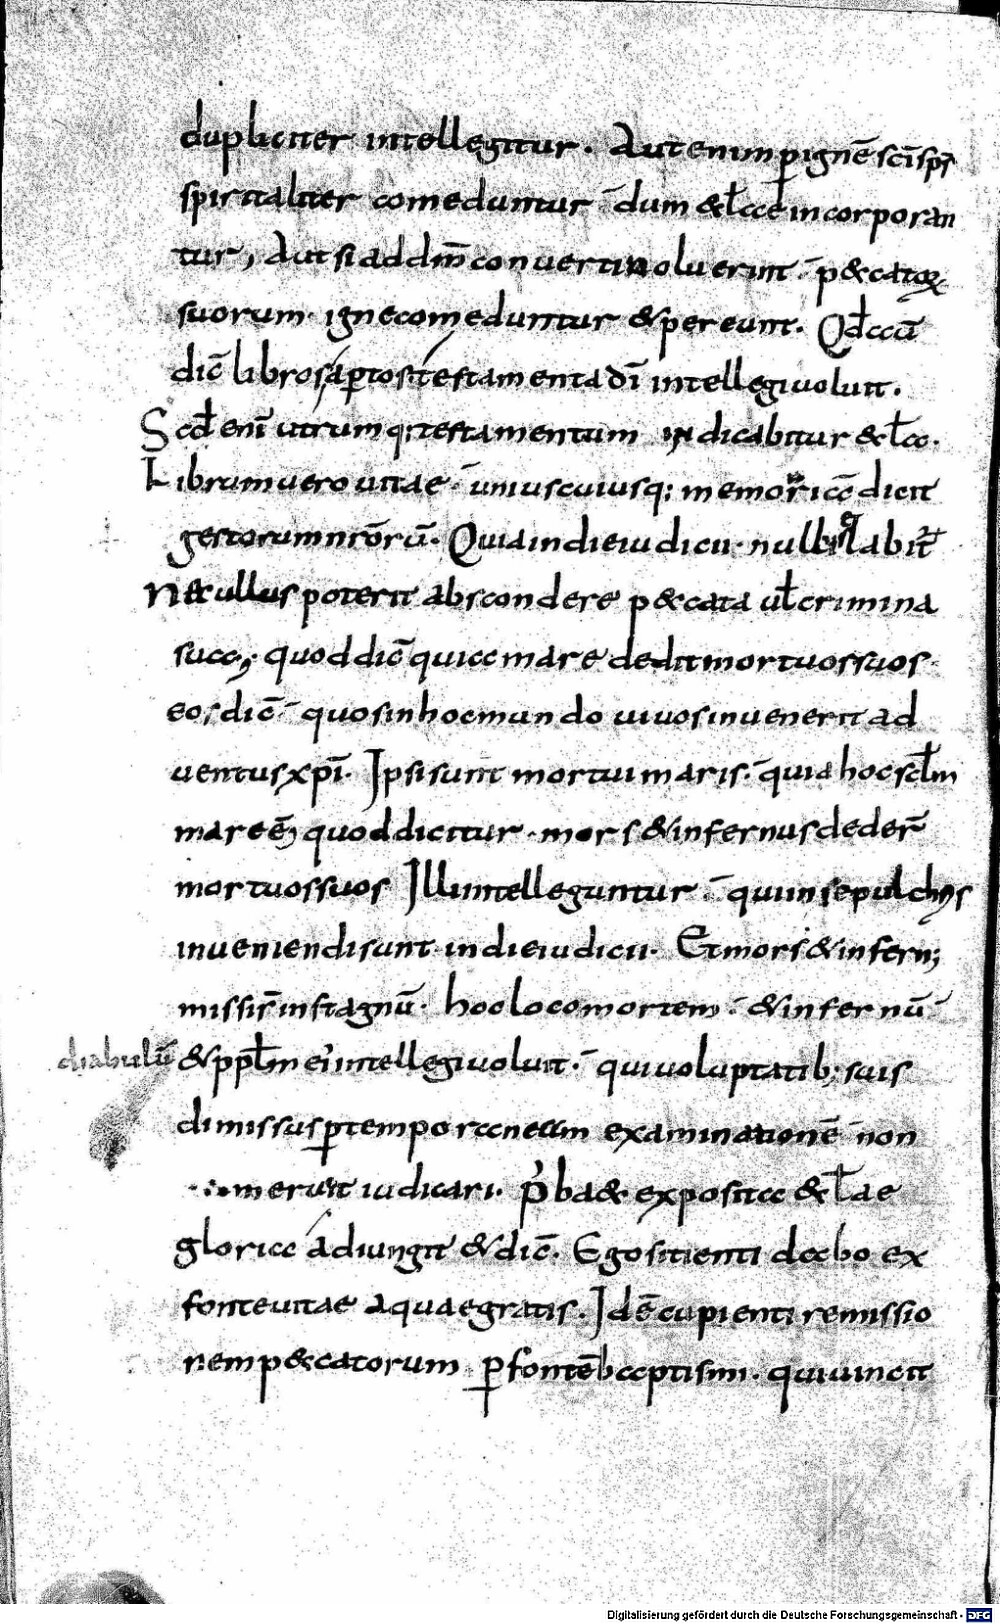 dupliciter intellegitur. Aut enim ꝑ ignē sc̄i sp̄s
spiritaliter comeduntur dum & ł ecce incorporan
tur, Aut si ad dm̄ converti noluerint p&catoꝝ
suorum igne comeduntur & pereunt. Qđ ccū
dic̄ libros aꝑtos testamenta dī intellegi voluit.
Scđ enī utrumq; testamentum indicabitur &łcc.
Librum vero vitae uniuscuiusq; memoricc dicit
gestorum nr̄orū. Quia in die iudicii nulli labit̄
Nec ullus poterit abscondere p&cata uł crimina
succ, quod dic̄ quicc mare dedit mortuos suos
eos dic̄ quos in hoc mundo vivos invenerit ad
ventus xp̄i. Ipsi sunt mortui maris quia hoc scłm
mare ē, quod dicitur mors & infernus dederr̄
mortuos suos Illi intelleguntur qui in sepulchris
inveniendi sunt in die iudicii. Et mors & infern;
missi sr̄ in stagnū. hoc loco mortem & infernū
diabulū & ppłm eī intellegi voluit qui voluptatib; suis
dimissus ꝑ temporccnecm examinationē non
merunt iudicari. p̄ ba& expositcc &łae
gloricc adiungit & dic̄. Ego sitienti dccbo ex
fonte vitae aquae gratis. Id ē cupienti remissio
nem p&catorum ꝑ fontē bccptismi. qui vincit
Digitalisierung gefördert durch die Deutsche Forschungsgemeinschaft - DFG